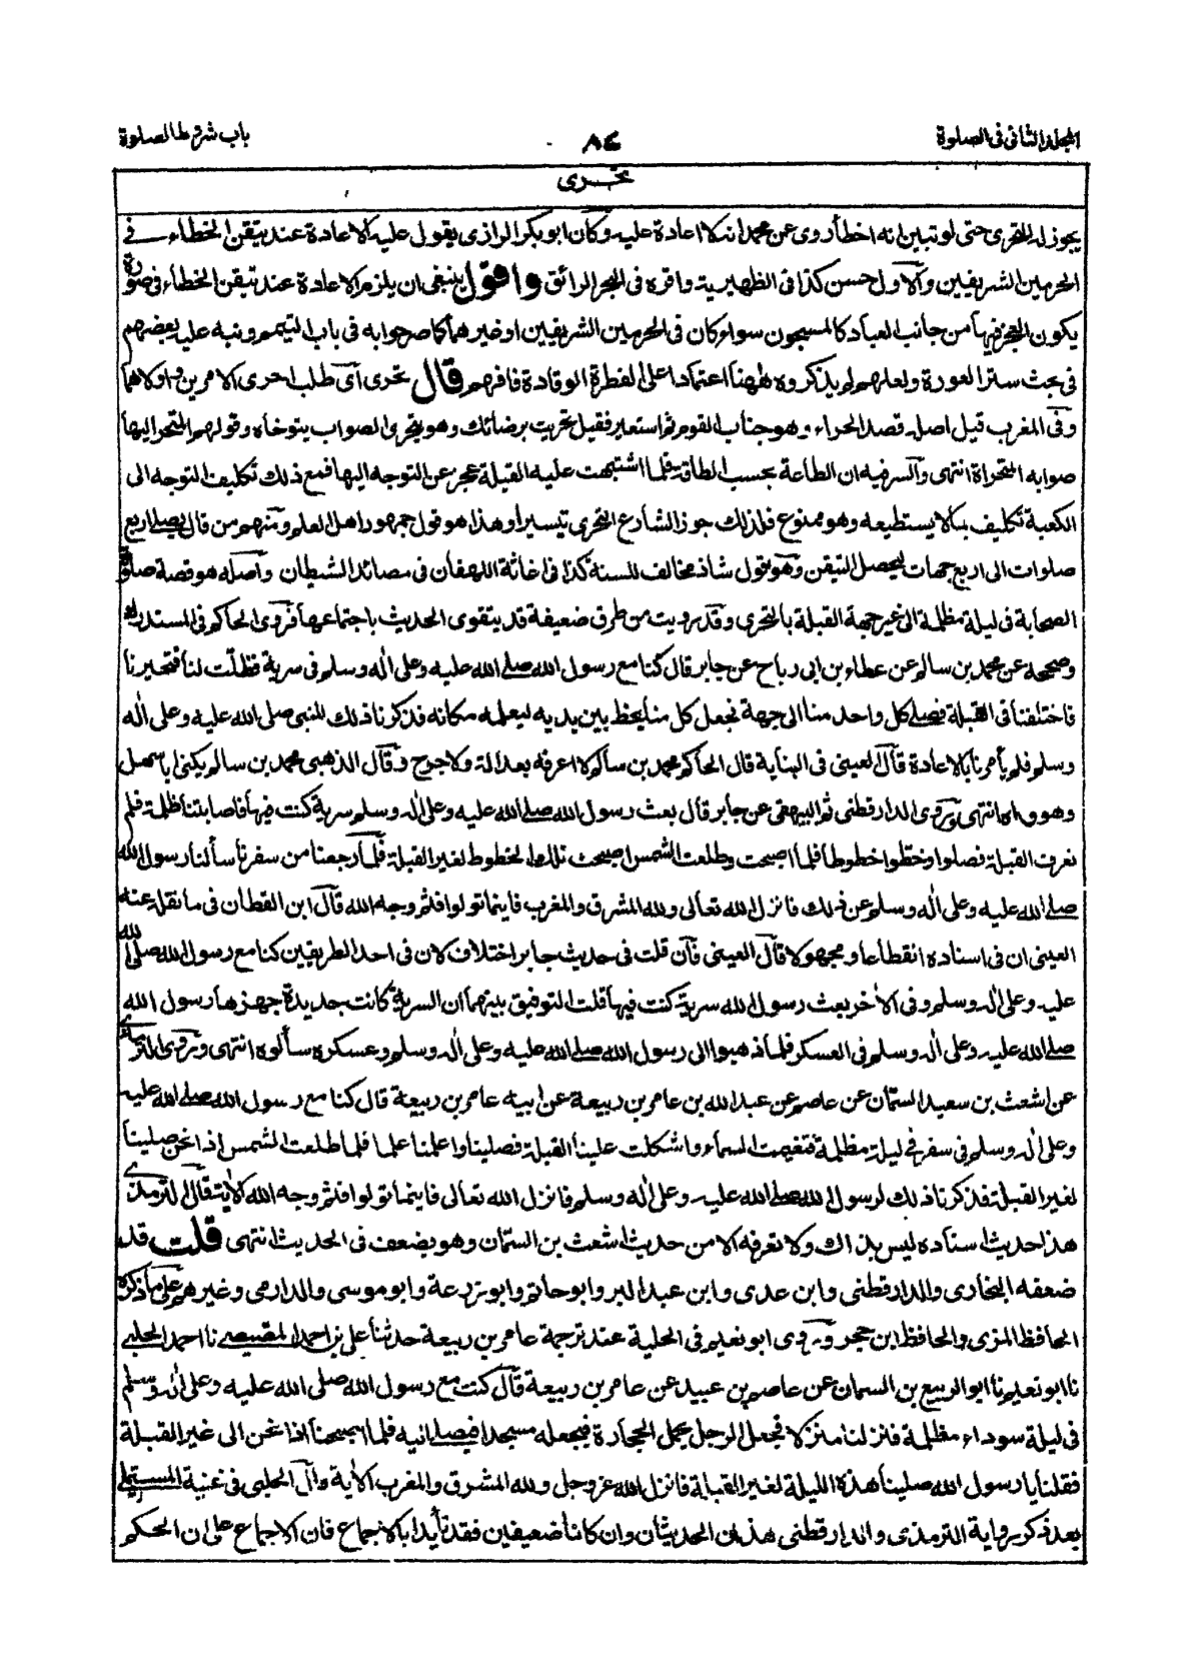 المجلد الثانی فی الصلوة
٨٤
باب شروط الصلوة
تحـــری
يجوز له التحری حتى لو تبين انه اخطأ روی عن محمد انه لا اعادة عليه وكان ابو بكر الرازی يقول عليه الاعادة عند تيقن الخطاء فی
الحرمين الشريفين والاول احسن كذا فی الظهيرية واقره فی البحر الرائق واقول ينبغی ان يلزم الاعادة عند تيقن الخطاء فی صورة
يكون العجز فيها من جانب العباد كالمسجون سواء كان فی الحرمين الشريفين او غيرهما كما صرحوا به فی باب التيمم ونبه عليه بعضهم
فی بحث ستر العورة ولعلهم لم يذكروه ههنا اعتمادا على الفطرة الوقادة فافهم قال تحری ای طلب احری الامرين واولاهما
وفی المغرب قيل اصله قصد الحراء وهو جناب القوم ثم استعير فقيل تحريت برضائك وهو يتحری الصواب يتوخاه وقولهم التحوا اليها
صوابه المتحراة انتهى والسر فيه ان الطاعة بحسب الطاقة فلما اشتبهت عليه القبلة عجز عن التوجه اليها فمع ذلك تكليف التوجه الى
الكعبة تكليف بما لا يستطيعه وهو ممنوع فلذلك جوز الشارع التحری تيسيرا وهذا هو قول جمهور اهل العلم ومنهم من قال يصلے اربع
صلوات الى اربع جهات ليحصل التيقن وهو قول شاذ مخالف للسنة كذا فی اغاثة اللهفان فی مصائد الشيطان واصله هو قصة صلوة
الصحابة فی ليلة مظلمة الى غير جهة القبلة بالتحری وقد رويت من طرق ضعيفة قد يتقوى الحديث باجتماعها فروی الحاكم فی المستدرك
وصححه عن محمد بن سالم عن عطاء بن ابی رباح عن جابر قال كنا مع رسول الله صلے الله عليه وعلى اله وسلم فی سرية فظلت لنا فتحيرنا
فاختلفنا فی القبلة فصلے كل واحد منا الى جهة فجعل كل منا يخط بين يديه ليعلم مكانه فذكرنا ذلك للنبی صلى الله عليه وعلى اله
وسلم فلم يأمرنا بالاعادة قال العينی فی البناية قال الحاكم محمد بن سالم لا اعرفه بعدالة ولا جرح وقال الذهبی محمد بن سالم يكنى ابا سهل
وهو واه انتهى وروی الدار قطنی ثم البيهقی عن جابر قال بعث رسول الله صلے الله عليه وعلى اله وسلم سرية كنت فيها فاصابتنا ظلمة فلم
نعرف القبلة فصلوا وخطوا خطوطا فلما اصبحت وطلعت الشمس اصبحت تلك الخطوط لغير القبلة فلما رجعنا من سفرنا سألنا رسول الله
صلے الله عليه وعلى اله وسلم عن ذلك فانزل الله تعالى ولله المشرق والمغرب فاينما تولوا فثم وجه الله قال ابن القطان فی ما نقله عنه
العينی ان فی اسناده انقطاعا ومجهولا قال العينی فان قلت فی حديث جابر اختلاف لان فی احد الطريقين كنا مع رسول الله صلى الله
عليه وعلى اله وسلم وفی الاخر بعث رسول الله سرية كنت فيها قلت التوفيق بينهما ان السرية كانت جديدة جهزها رسول الله
صلے الله عليه وعلى اله وسلم فی العسكر فلما ذهبوا الى رسول الله صلے الله عليه وعلى اله وسلم وعسكره سألوه انتهى وروی الترمذی
عن اشعث بن سعيد السمان عن عاصم عن عبد الله بن عامر بن ربيعة عن ابيه عامر بن ربيعة قال كنا مع رسول الله صلے الله عليه
وعلى اله وسلم فی سفر فی ليلة مظلمة فتغيمت السماء واشكلت علينا القبلة فصلينا واعلمنا علما فلما طلعت الشمس اذا نحن صلينا
لغير القبلة فذكرنا ذلك لرسول الله صلے الله عليه وعلى اله وسلم فانزل الله تعالى فاينما تولوا فثم وجه الله الاية قال الترمذی
هذا حديث اسناده ليس بذاك ولا نعرفه الا من حديث اشعث بن السمان وهو يضعف فی الحديث انتهى قلت قد
ضعفه البخاری والدار قطنی وابن عدی وابن عبد البر وابو حاتم وابو زرعة وابو موسى والدارمی وغيرهم على ما ذكره
الحافظ المزی والحافظ ابن حجر وروی ابو نعيم فی الحلية عند ترجمة عامر بن ربيعة حدثنا علی بن احمد المصيصی نا احمد الحلبی
نا ابو نعيم نا ابو الربيع بن السمان عن عاصم بن عبيد عن عامر بن ربيعة قال كنت مع رسول الله صلى الله عليه وعلى اله وسلم
فی ليلة سوداء مظلمة فنزلنا منزلا فجعل الرجل يحمل الحجارة فيجعله مسجدا فيصلے اليه فلما اصبحنا اذا نحن الى غير القبلة
فقلنا يا رسول الله صلينا هذه الليلة لغير القبلة فانزل الله عز وجل ولله المشرق والمغرب الاية وقال الحلبی فی غنية المستملے
بعد ذكر رواية الترمذی والدار قطنی هذان الحديثان وان كانا ضعيفين فقد تأيدا بالاجماع فان الاجماع على ان الحكم